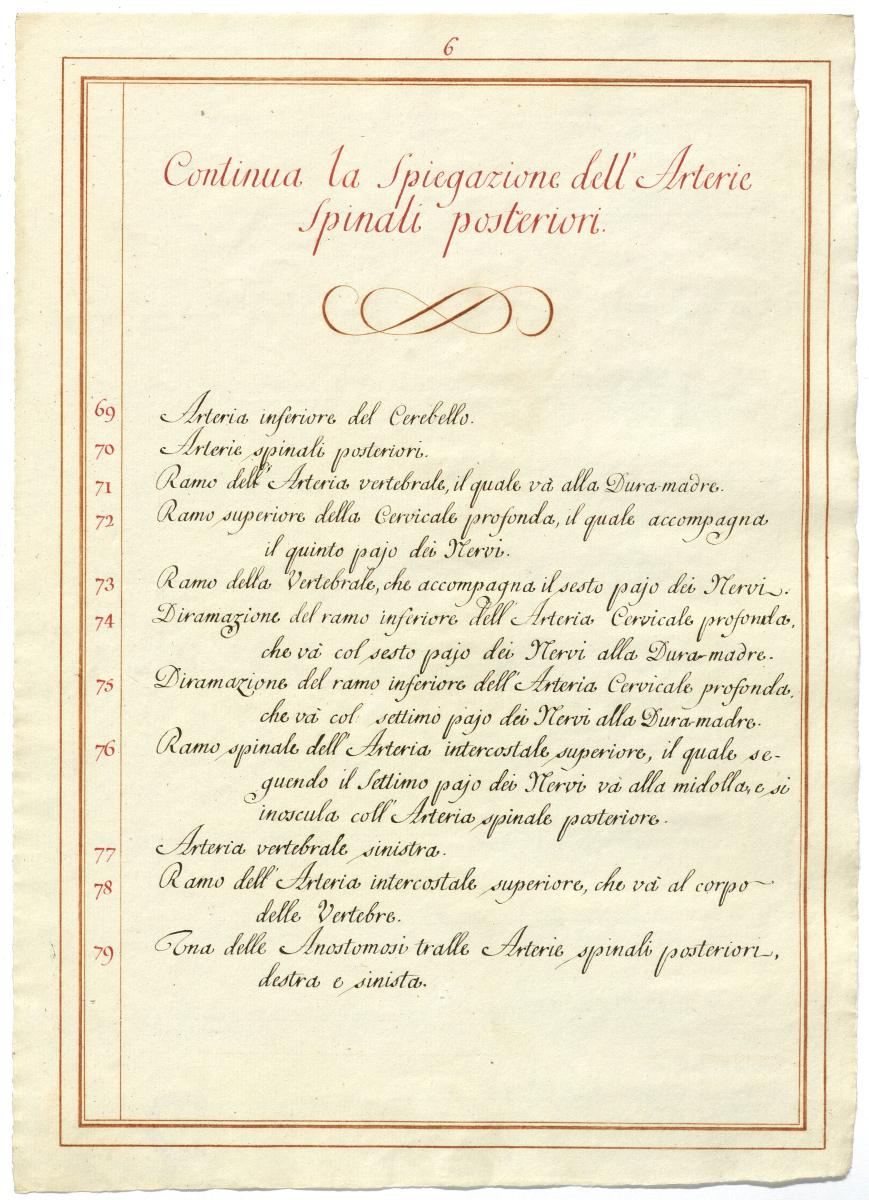 6
Continua la Spiegazione dell'Arterie
Spinali posteriori.
69 Arteria inferiore del Cerebello.
70 Arterie spinali posteriori.
71 Ramo dell'Arteria vertebrale, il quale và alla Dura-madre.
72 Ramo superiore della Cervicale profonda, il quale accompagna
il quinto pajo dei Nervi.
73 Ramo della Vertebrale, che accompagna il sesto pajo dei Nervi.
74 Diramazione del ramo inferiore dell'Arteria Cervicale profonda,
che và col sesto pajo dei Nervi alla Dura-madre.
75 Diramazione del ramo inferiore dell'Arteria Cervicale profonda,
che và col settimo pajo dei Nervi alla Dura-madre.
76 Ramo spinale dell'Arteria intercostale superiore, il quale se-
guendo il Settimo pajo dei Nervi và alla midolla, e si
inoscula coll'Arteria spinale posteriore.
77 Arteria vertebrale sinistra.
78 Ramo dell'Arteria intercostale superiore, che và al corpo
delle Vertebre.
79 Una delle Anostomosi tralle Arterie spinali posteriori,
destra e sinista.